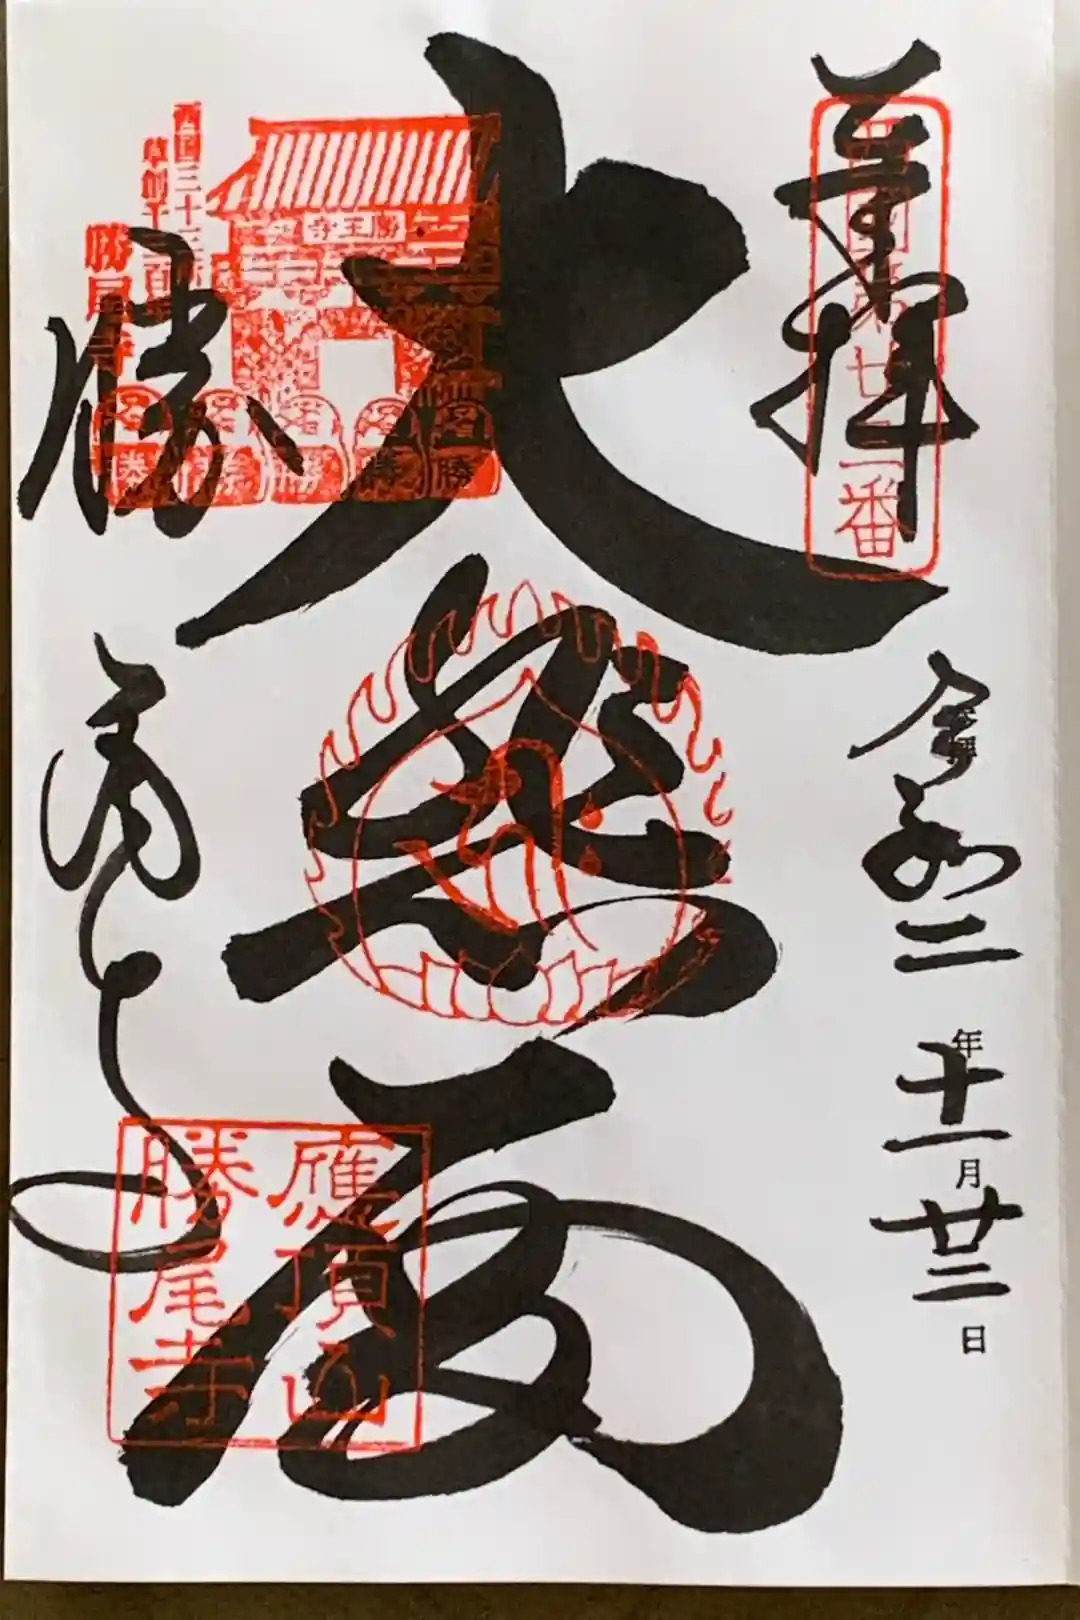 奉拝
西国第廿三番
参拝
令和二年十一月廿三日
大悲殿
西国三十三所
草創千三百年
勝尾寺
勝王寺
勝尾寺
應頂山
勝尾寺